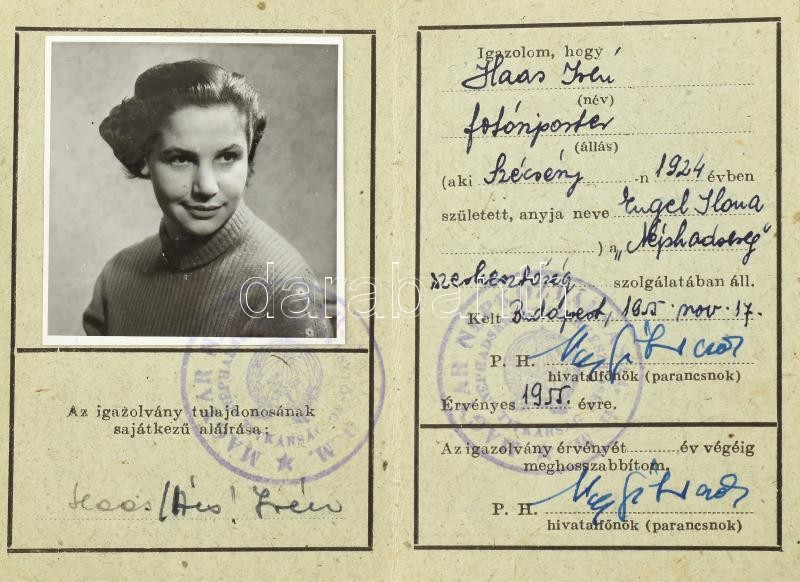 Az igazolvány tulajdonosának
sajátkezű aláírása:
Haas /Ács/ Irén
Igazolom, hogy
Haas Irén
(név)
fotóriporter
(állás)
(aki Szécsény -n 1924 évben
született, anyja neve Engel Ilona
) a „Néphadsereg"
szerkesztőség szolgálatában áll.
Kelt Budapest, 1955. nov. 17.
P. H.
hivatalfőnök (parancsnok)
Érvényes 1955. évre.
Az igazolvány érvényét év végéig
meghosszabbítom.
P. H.
hivatalfőnök (parancsnok)
darabanth